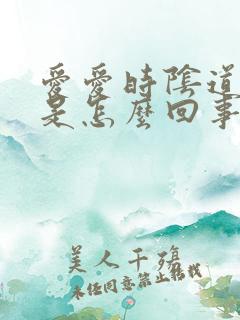 愛愛時陰道
是怎麼回事
美人千殤
未经同意禁止转载